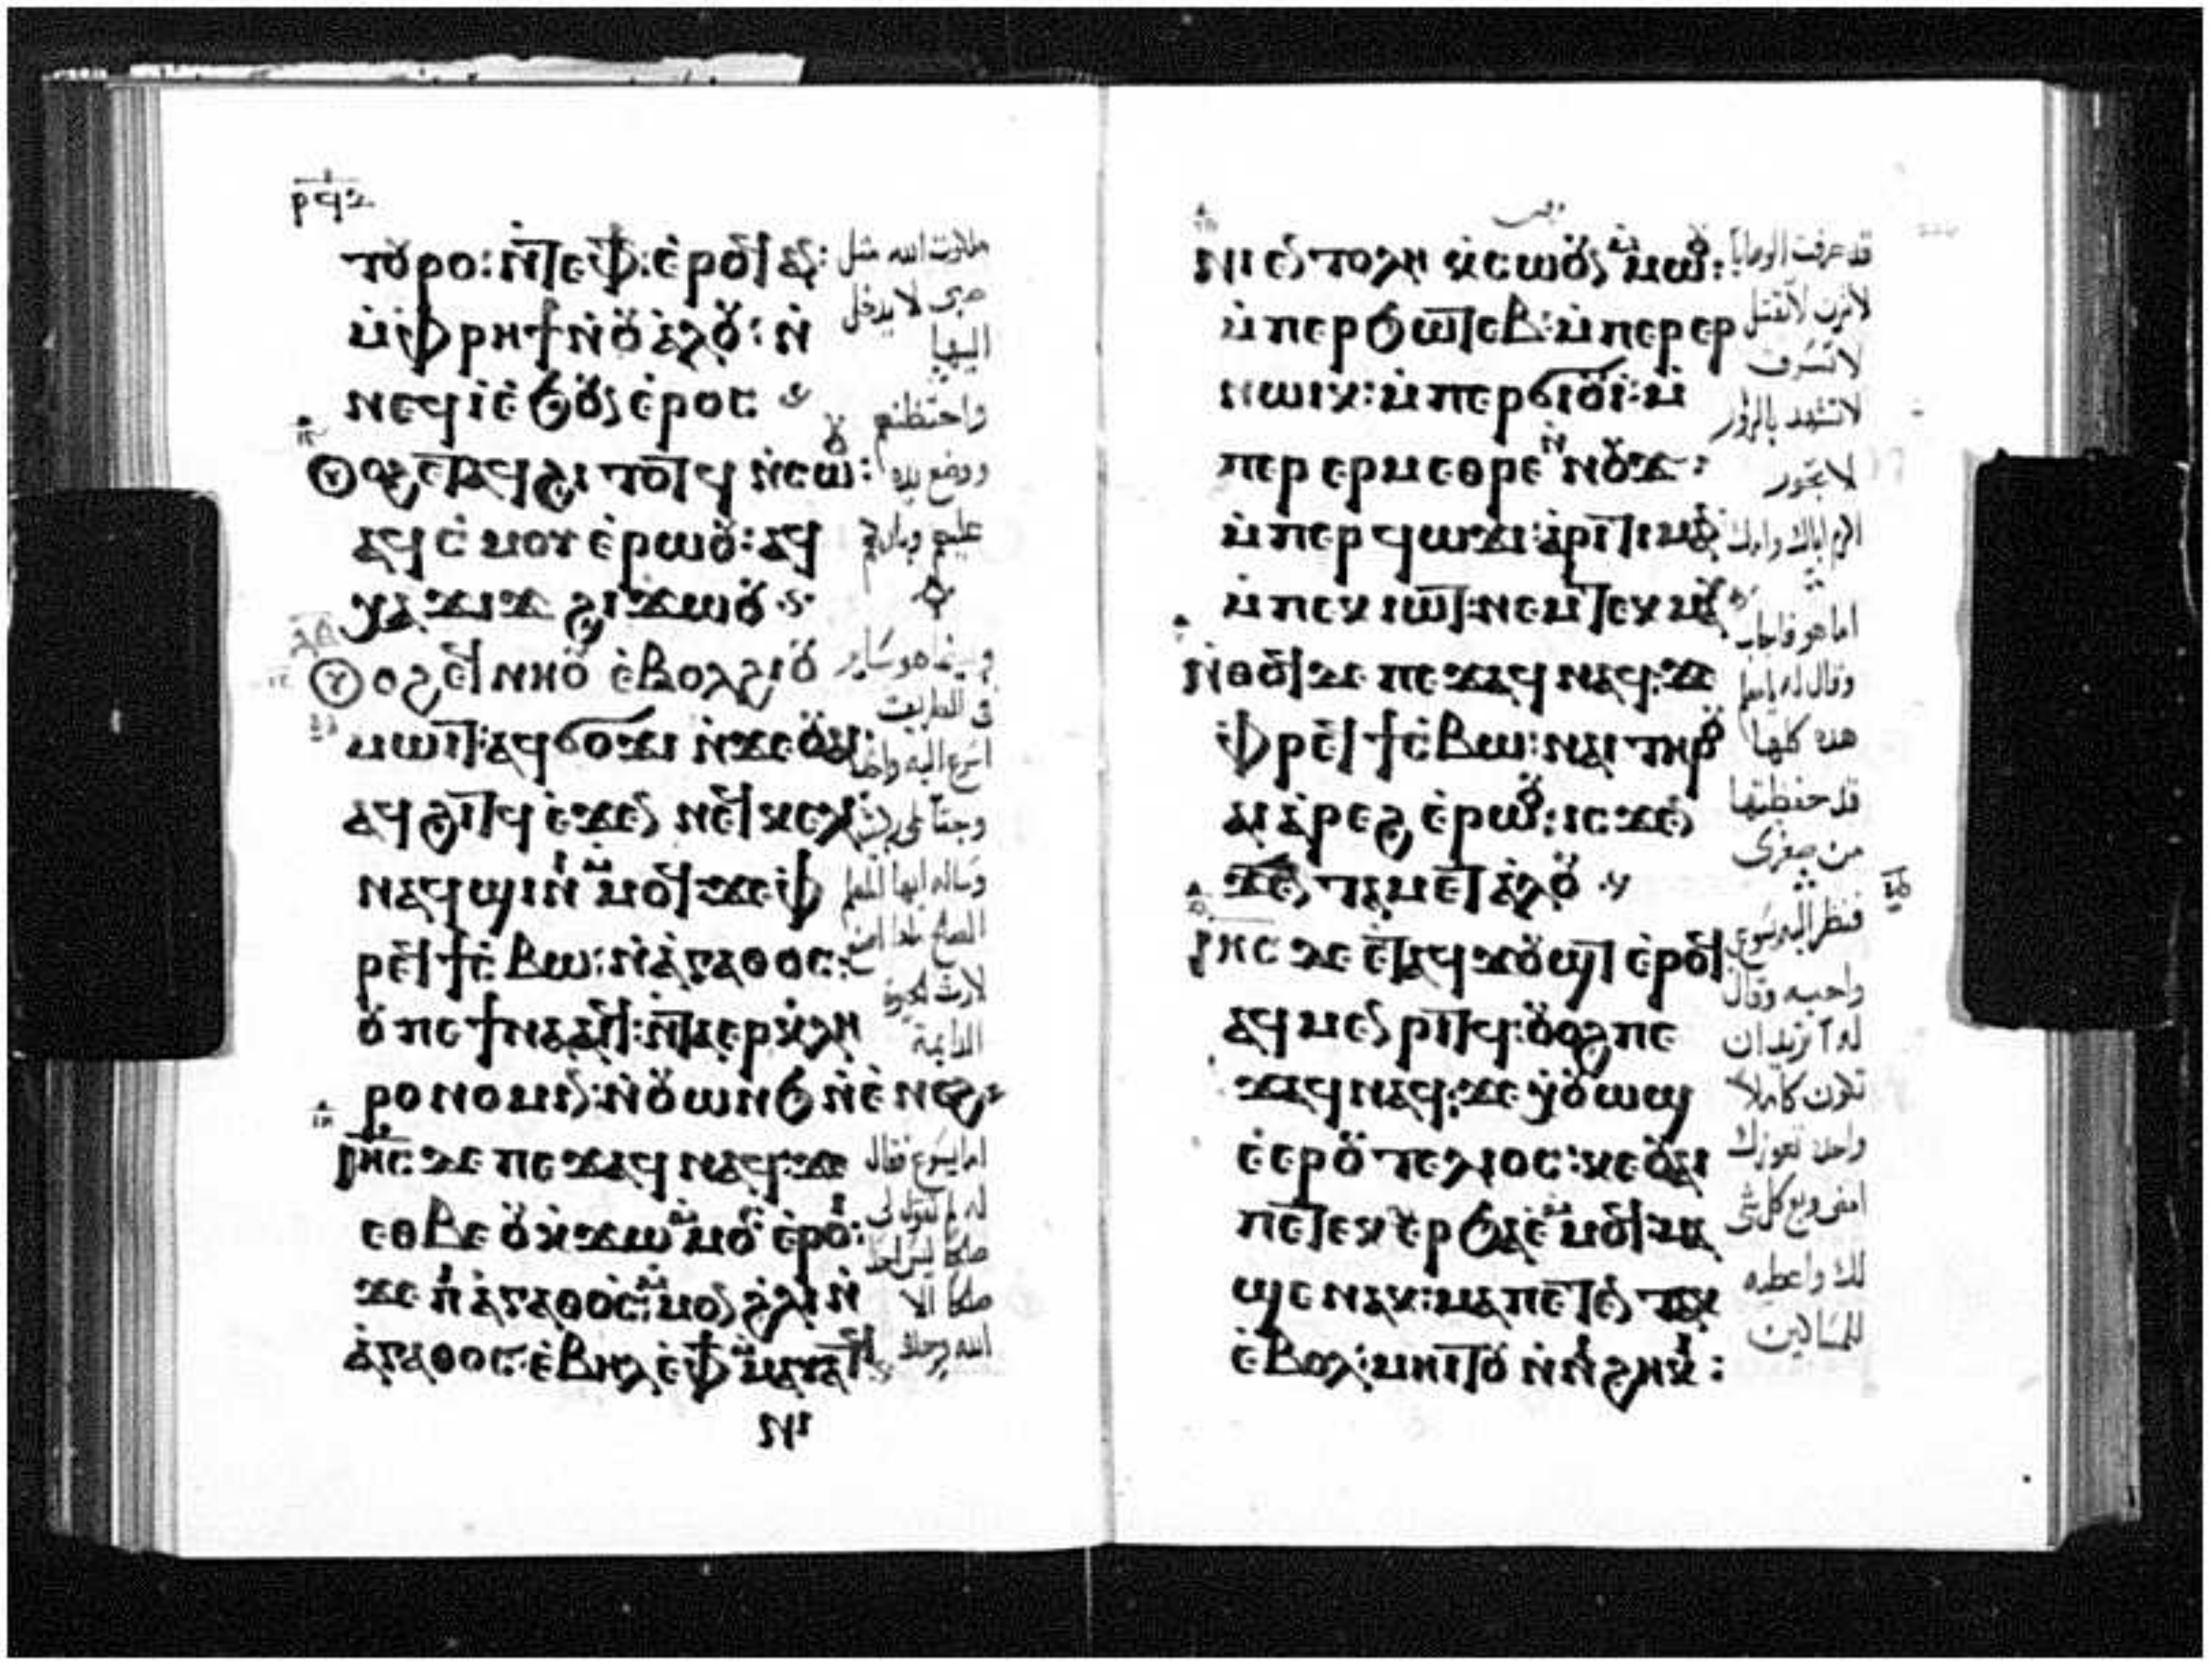 ⲧⲟⲩⲣⲟ: ⲛ̀ⲧⲉⲫϯ: ⲉ̀ⲣⲟϥ ⲁⲛ:
ⲙ̀ⲫⲣⲏϯ ⲛ̀ⲟⲩⲁ̀ⲗⲟⲩ: ⲛ̀
ⲛⲉϥⲓ̀ ⲉ̀ϧⲟⲩⲛ ⲉ̀ⲣⲟⲥ
ⲟⲩⲟϩ ⲉ̀ⲧⲁϥϩⲓ ⲧⲟⲧϥ ⲛ̀ⲥⲱⲟⲩ:
ⲁϥⲥ̀ⲙⲟⲩ ⲉ̀ⲣⲱⲟⲩ: ⲁϥ
ⲭⲁ ϫⲓϫ ϩⲓϫⲱⲟⲩ
ⲟⲩⲟϩ ⲉϥⲛⲏⲟⲩ ⲉ̀ⲃⲟⲗ ϩⲓ ⲟⲩ
ⲙⲱⲓⲧ: ⲁϥϭⲟϫⲓ ⲛ̀ϫⲉ ⲟⲩⲁⲓ:
ⲁϥϩⲓⲧϥ ⲉ̀ϫⲉⲛ ⲛⲉϥⲕⲉⲗⲓ
ⲛⲁϥϣⲓⲛⲓ ⲙ̀ⲙⲟϥ ϫⲉ ⲫ
ⲣⲉϥϯⲥ̀ⲃⲱ: ⲛ̀ⲁ̀ⲅⲁⲑⲟⲥ:
ⲟⲩ ⲡⲉϯⲛⲁⲁⲓϥ: ⲛ̀ⲧⲁⲉⲣⲕ̀ⲗⲏ
ⲣⲟⲛⲟⲙⲓⲛ: ⲛ̀ⲟⲩⲱⲛϧ ⲛ̀ⲉ̀ⲛⲉϩ
ⲓⲏ̅ⲥ̅ ⲇⲉ ⲡⲉϫⲁϥ ⲛⲁϥ: ϫⲉ
ⲉⲑⲃⲉ ⲟⲩ ⲕ̀ϫⲱ ⲙ̀ⲙⲟⲥ ⲉ̀ⲣⲟⲓ:
ϫⲉ ⲡⲓⲁ̀ⲅⲁⲑⲟⲥ: ⲙ̀ⲙⲟⲛ ϩ̀ⲗⲓ ⲛ̀
ⲁ̀ⲅⲁⲑⲟⲥ: ⲉ̀ⲃⲏⲗ ⲉ̀ⲫϯ ⲙ̀ⲙⲁⲩⲁⲧϥ
ⲛⲓ
ملكوت الله مثل
صبى لا يدخل
اليها
واحتضنهم
ووضع يده
عليهم وباركهم
وبينما هو سائر
فى الطريق
اما يسوع فقال
صالحا الا
الله وحده
وقف
ⲛⲓⲉⲛⲧⲟⲗⲏ ⲕ̀ⲥⲱⲟⲩⲛ ⲙ̀ⲙⲱⲟⲩ:
ⲙ̀ⲡⲉⲣϧⲱⲧⲉⲃ: ⲙ̀ⲡⲉⲣⲉⲣ
ⲛⲱⲓⲕ: ⲙ̀ⲡⲉⲣϭⲓⲟⲩⲓ: ⲙ̀
ⲡⲉⲣ ⲉⲣⲙⲉⲑⲣⲉ ⲛ̀ⲛⲟⲩϫ:
ⲙ̀ⲡⲉⲣϥⲱϫⲓ: ⲁ̀ⲣⲓⲧⲓⲙⲁⲛ
ⲙ̀ⲡⲉⲕⲓⲱⲧ: ⲛⲉⲙ ⲧⲉⲕⲙⲁⲩ
ⲛ̀ⲑⲟϥ ⲇⲉ ⲡⲉϫⲁϥ ⲛⲁϥ: ϫⲉ
ⲫⲣⲉϥϯⲥ̀ⲃⲱ: ⲛⲁⲓ ⲧⲏⲣⲟⲩ
ⲁⲓⲁ̀ⲣⲉϩ ⲉ̀ⲣⲱⲟⲩ: ⲓⲥϫⲉⲛ
ⲧⲁⲙⲉⲧⲁ̀ⲗⲟⲩ
ⲓⲏ̅ⲥ̅ ⲇⲉ ⲉ̀ⲧⲁϥϫⲟⲩϣⲧ ⲉ̀ⲣⲟϥ
ⲁϥⲙⲉⲛⲣⲓⲧϥ: ⲟⲩⲟϩ ⲡⲉ
ϫⲁϥ ⲛⲁϥ: ϫⲉ ⲭ̀ⲟⲩⲱϣ
ⲉ̀ⲉⲣⲟⲩⲧⲉⲗⲓⲟⲥ: ⲕⲉⲟⲩⲁⲓ
ⲡⲉⲧⲉⲕⲉⲣϧⲁⲉ̀ ⲙ̀ⲙⲟϥ: ⲙⲁ
ϣⲉ ⲛⲁⲕ: ⲙⲁ ⲡⲉⲧⲉⲛⲧⲁⲕ
ⲉ̀ⲃⲟⲗ: ⲙⲏⲓⲧⲟⲩ ⲛ̀ⲛⲓϩⲏⲕⲓ:
قد عرفت الوصايا
لا تزن لا تقتل
لا تسرق
لا تشهد بالزور
لا تجور
اكرم اباك وامك
اما هو فاجاب
وقال له يا معلم
هذه كلها
قد حفظتها
من صغرى
فنظر اليه يسوع
واحبه وقال
له اتريد ان
تكون كاملا
واحدة تعوزك
امض وبع كل شى
لك واعطيه
للمساكين